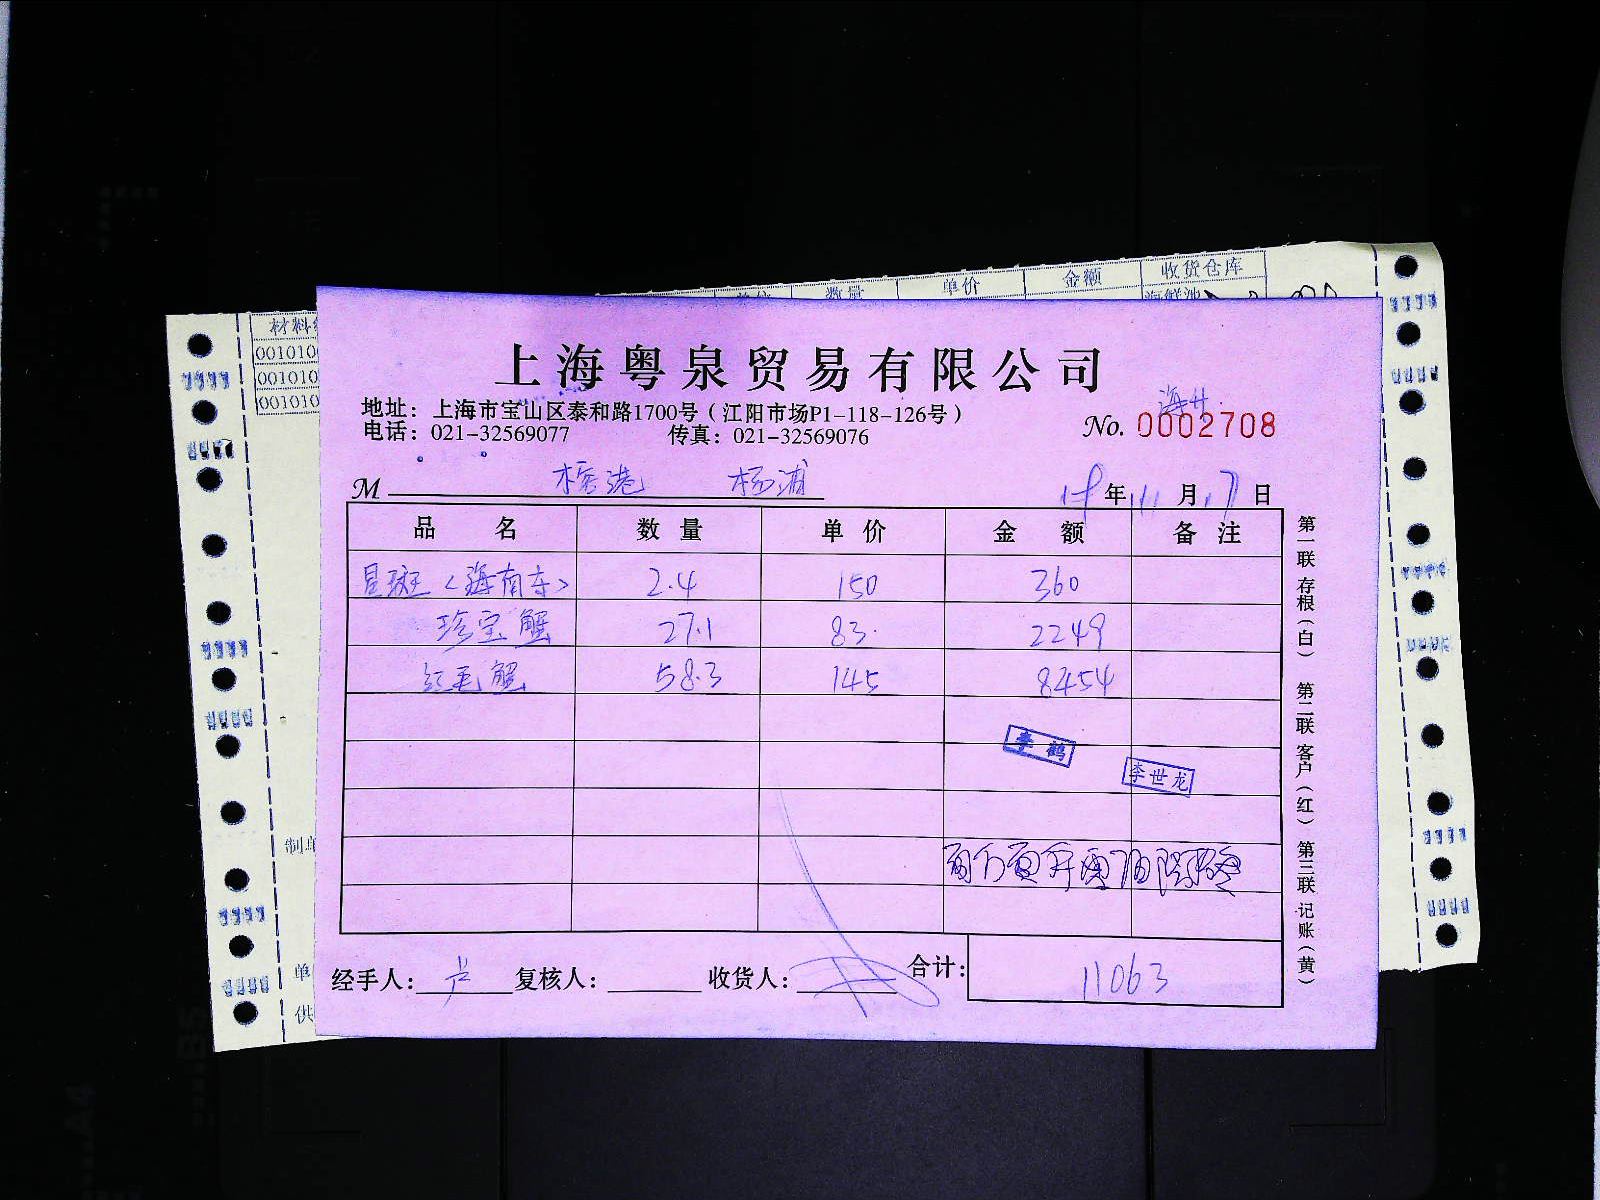 单价 金额 收货仓库
数量
海鲜池
材料
001010
001010
001010
制单
单
供
上海粤泉贸易有限公司
地址：上海市宝山区泰和路1700号（江阳市场P1-118-126号）
电话：021-32569077 传真：021-32569076
No. 0002708
M 杨浦
年 11 月 17 日
品名 数量 单价 金额 备注
星斑（海南东） 2.4 150 360
珍宝蟹 27.1 83 2249
红毛蟹 58.3 145 8454
李鹤
李世龙
经手人： 卢 复核人： 收货人： 合计： 11063
第一联 存根（白） 第二联 客户（红） 第三联 记账（黄）